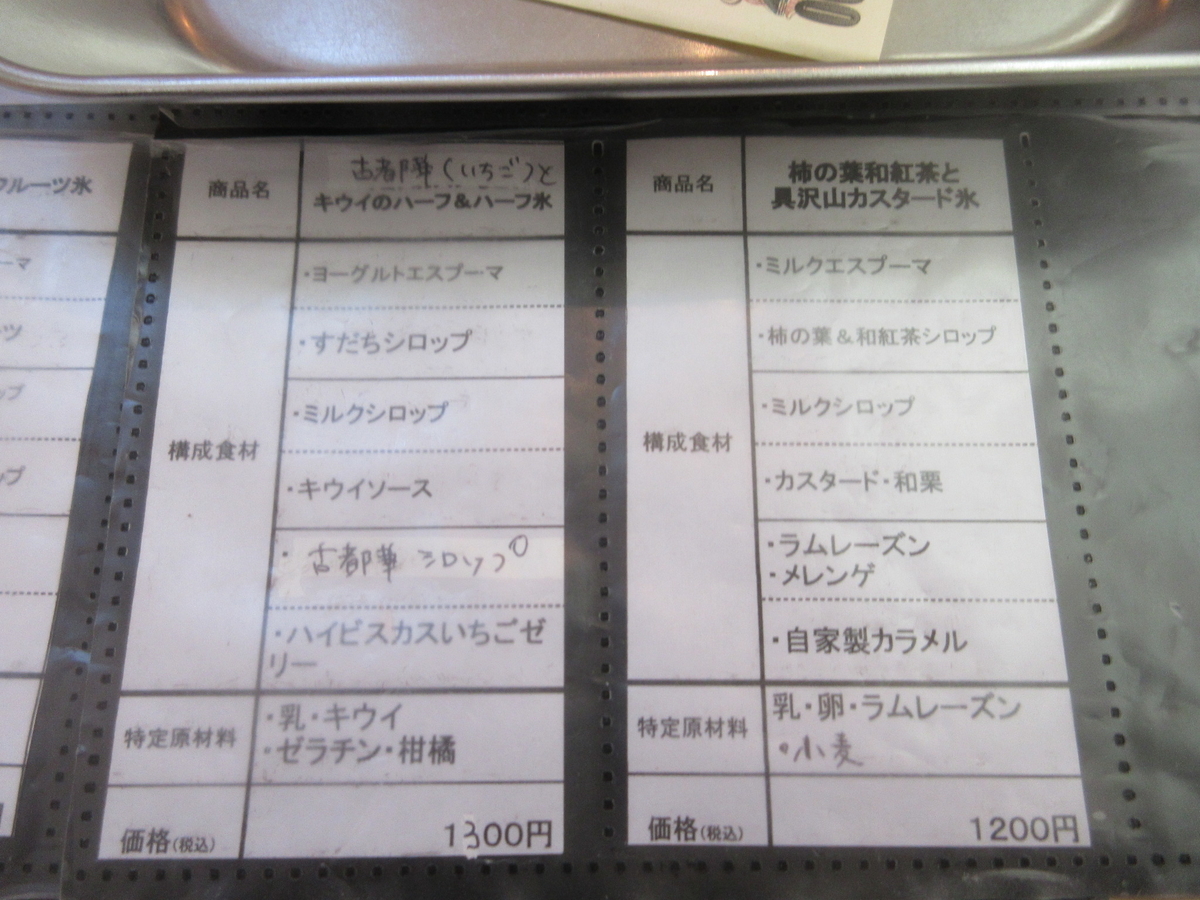 00
フルーツ氷
ーマ
ーツ
ップ
ップ
円
商品名
古都華(いちご)と
キウイのハーフ&ハーフ氷
構成食材
・ヨーグルトエスプーマ
・すだちシロップ
・ミルクシロップ
・キウイソース
・古都華シロップ
・ハイビスカスいちごゼ
リー
特定原材料
・乳・キウイ
・ゼラチン・柑橘
価格(税込)
1300円
商品名
柿の葉和紅茶と
具沢山カスタード氷
構成食材
・ミルクエスプーマ
・柿の葉&和紅茶シロップ
・ミルクシロップ
・カスタード・和栗
・ラムレーズン
・メレンゲ
・自家製カラメル
特定原材料
乳・卵・ラムレーズン
・小麦
価格(税込)
1200円